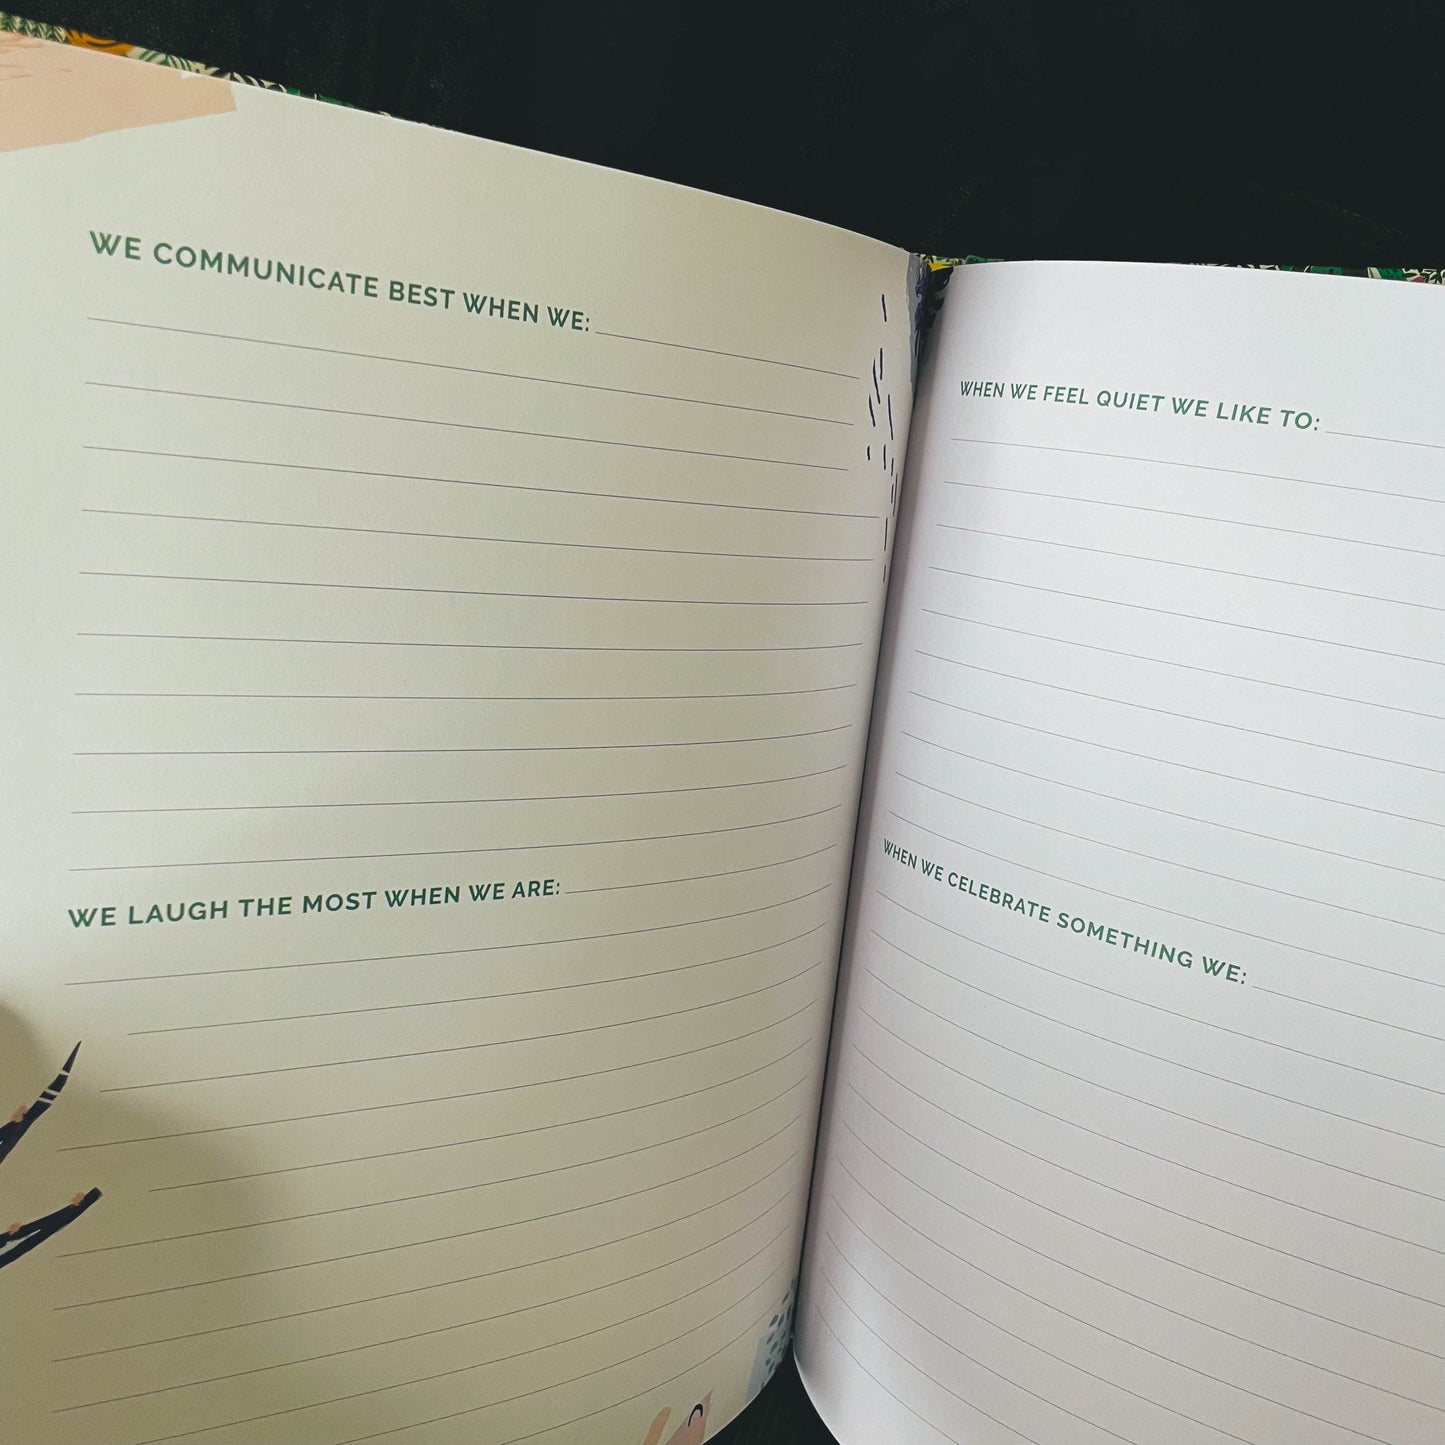 WE COMMUNICATE BEST WHEN WE:
WE LAUGH THE MOST WHEN WE ARE:
WHEN WE FEEL QUIET WE LIKE TO:
WHEN WE CELEBRATE SOMETHING WE: